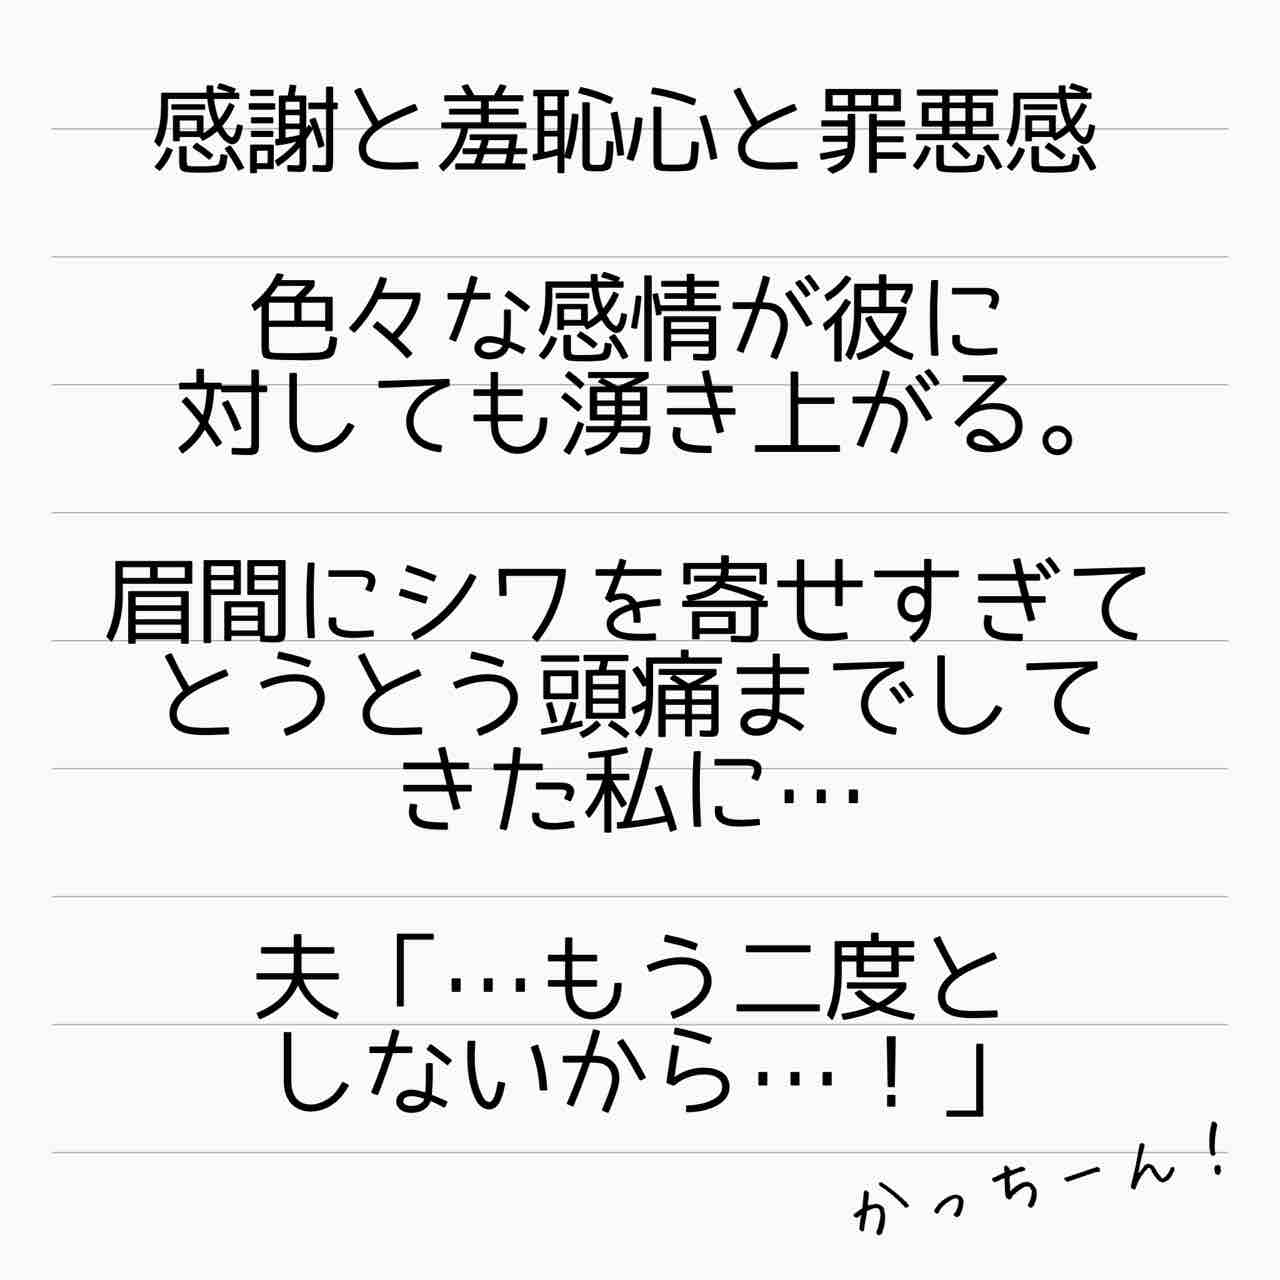 感謝と羞恥心と罪悪感
色々な感情が彼に
対しても湧き上がる。
眉間にシワを寄せすぎて
とうとう頭痛までして
きた私に…
夫「…もう二度と
しないから…！」
かっちーん！